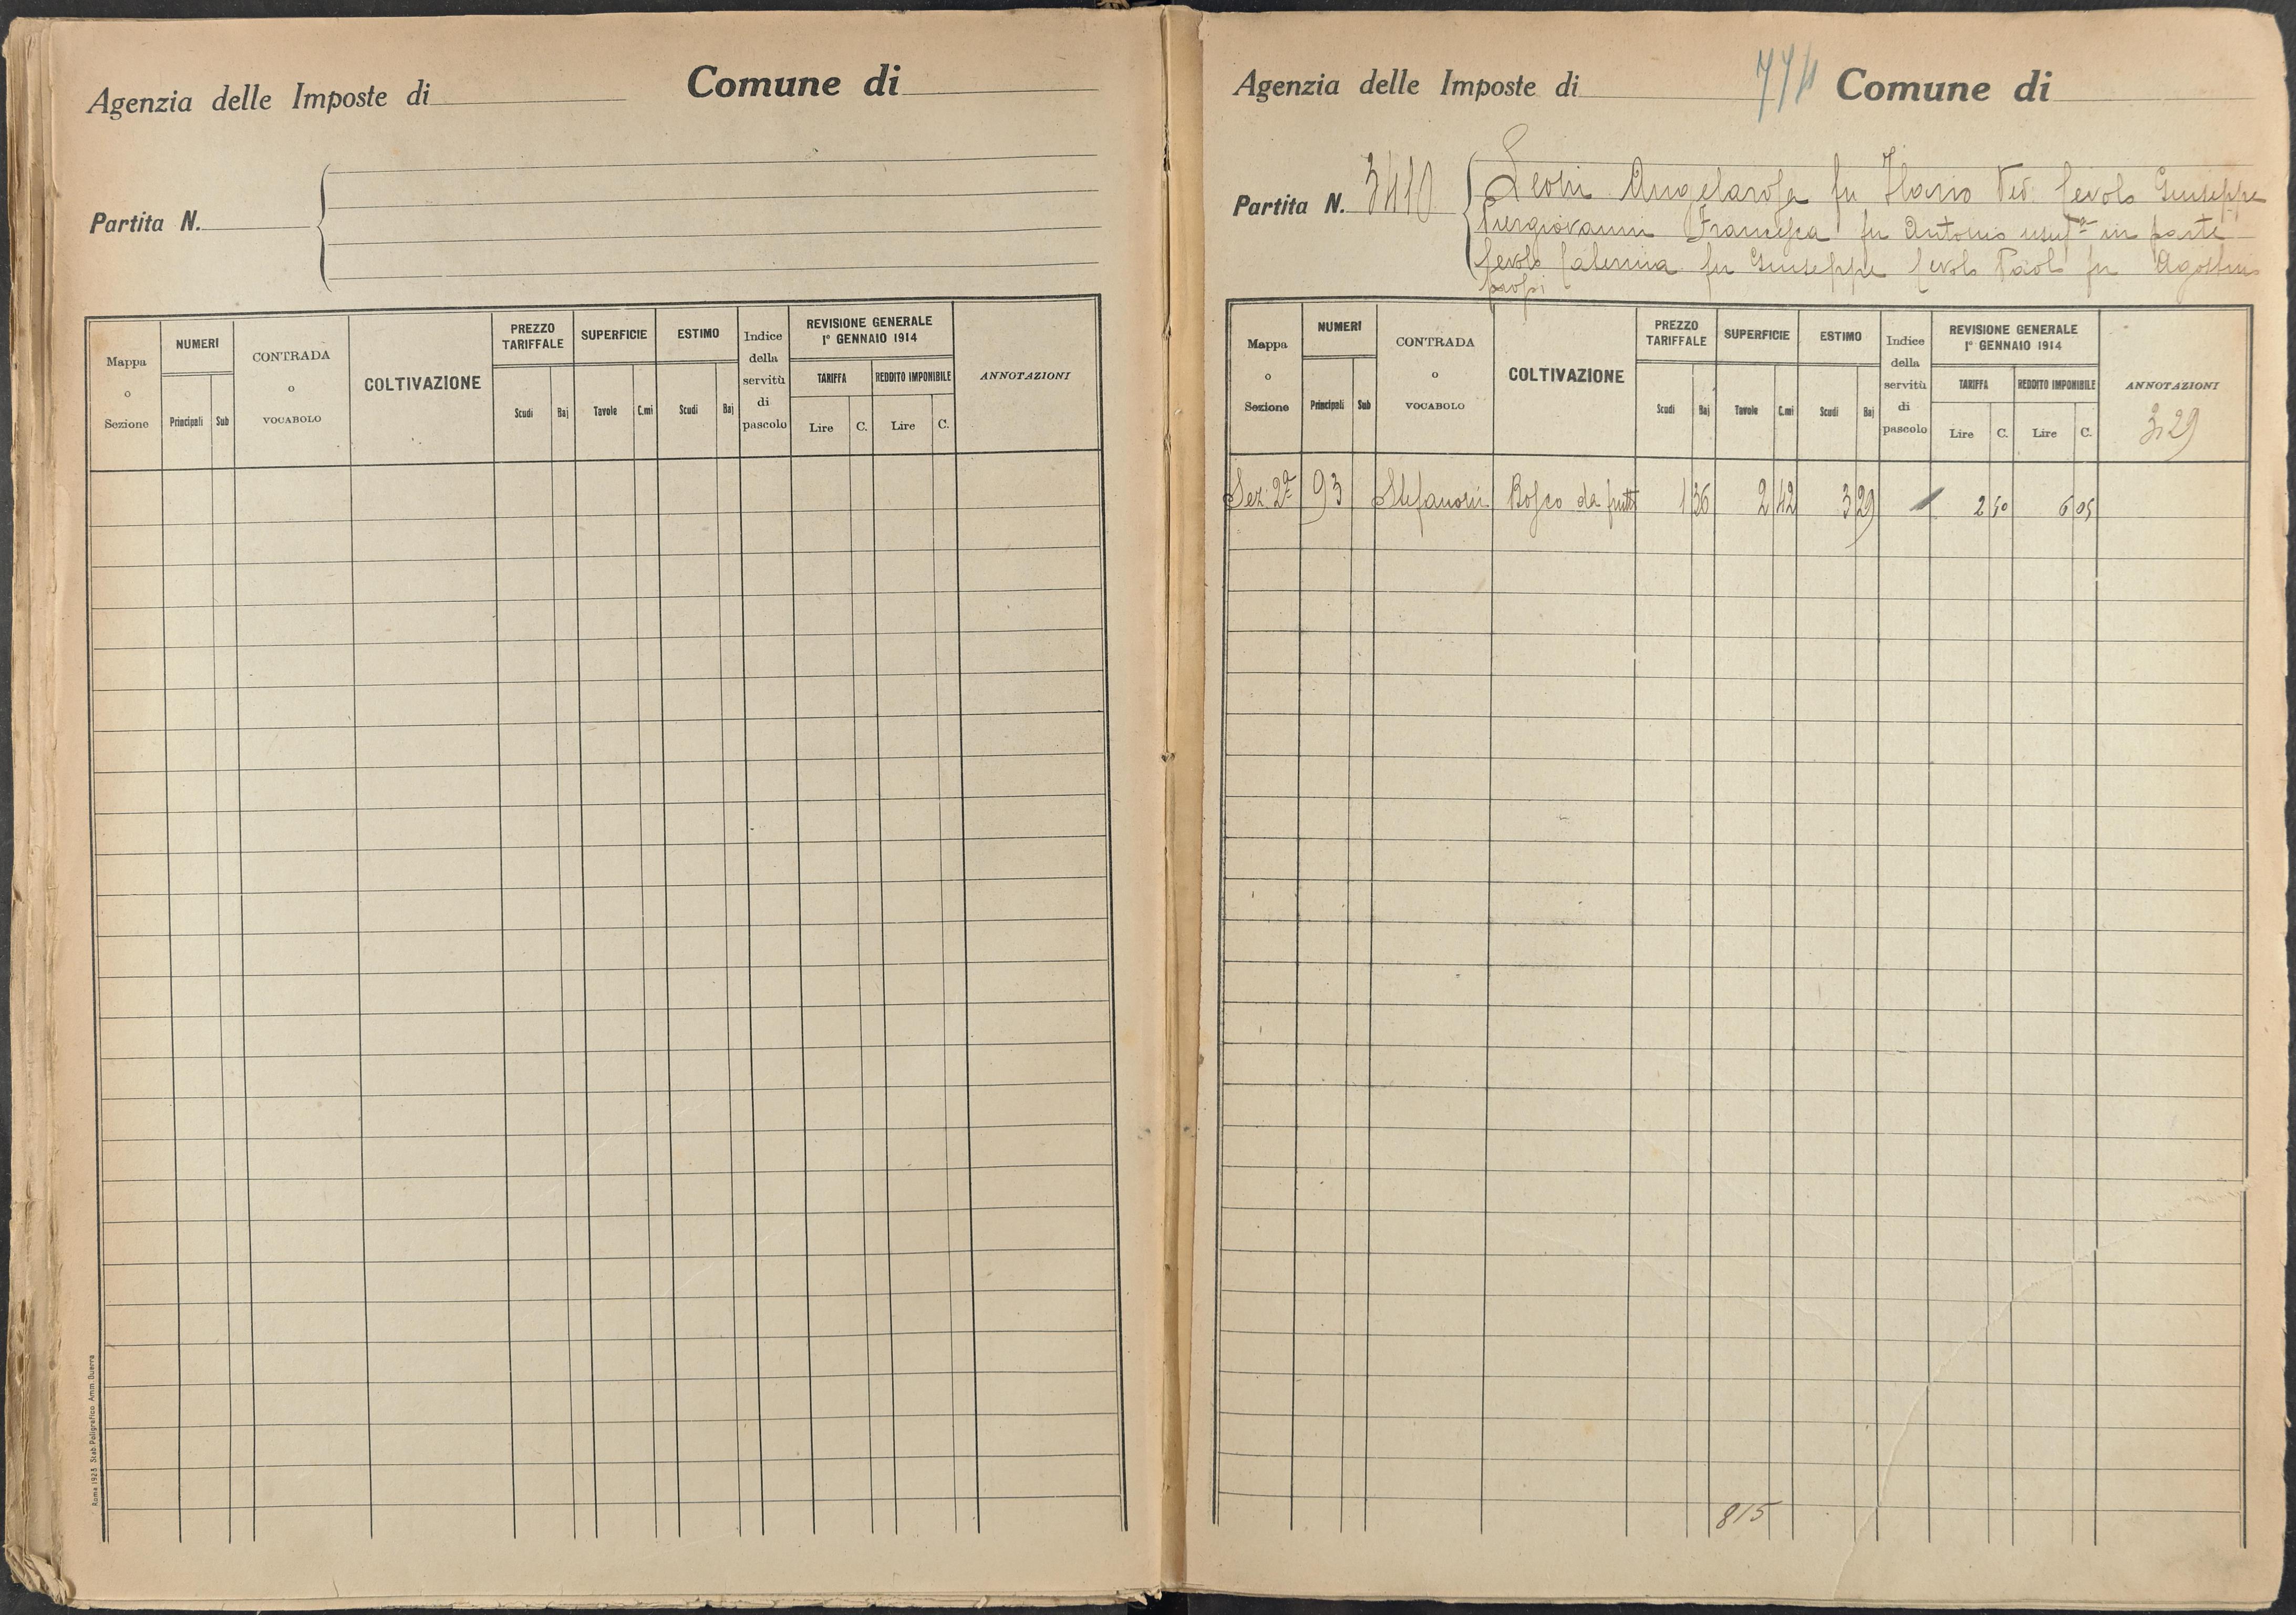 Agenzia delle Imposte di Comune di
Partita N.
Mappa o Sezione
NUMERI
Principali Sub
CONTRADA o VOCABOLO
COLTIVAZIONE
PREZZO TARIFFALE
Scudi Baj
SUPERFICIE
Tavole C.mi
ESTIMO
Scudi Baj
Indice della servitù di pascolo
REVISIONE GENERALE
1° GENNAIO 1914
TARIFFA REDDITO IMPONIBILE
Lire C. Lire C.
ANNOTAZIONI
Roma 1923 Stab. Poligrafico Amm. Guerra
Agenzia delle Imposte di Comune di
Partita N. 3410
Leoni Angelarosa fu Ilario Ved: Cevolo Giuseppe
Piergiovanni Francesca fu Antonio usufª in parte
Cevolo Caterina fu Giuseppe Cevolo Paolo fu Agostino
propi
Mappa o Sezione
NUMERI
Principali Sub
CONTRADA o VOCABOLO
COLTIVAZIONE
PREZZO TARIFFALE
Scudi Baj
SUPERFICIE
Tavole C.mi
ESTIMO
Scudi Baj
Indice della servitù di pascolo
REVISIONE GENERALE
1° GENNAIO 1914
TARIFFA REDDITO IMPONIBILE
Lire C. Lire C.
ANNOTAZIONI
3,29
Sez: 2ª 93 Stefanoni Bosco da frutto 1 36 2 42 3 29 2 50 6 05
815